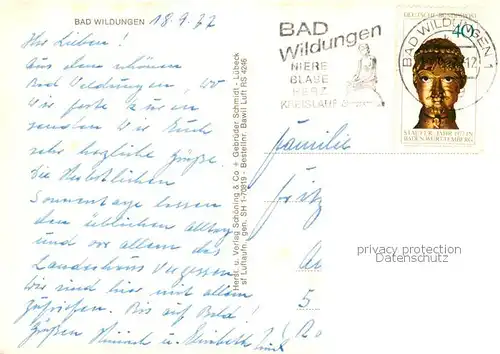 BAD WILDUNGEN 18.9.77
Ihr Lieben!
Aus dem schönen
Bad Wildungen, wo
wir zur
senden wir Euch
sehr herzliche Grüße.
Die herbstlichen
Sonnentage lassen
den üblichen Alltag
und vor allem das
vergessen
Wir sind hier mit allem
zufrieden. Bis auf Bald!
Grüßen Heinrich u. Elisabeth
Herst. u. Verlag Schöning & Co + Gebrüder Schmidt - Lübeck
sf Luftaufn. gen. SH 1-70819 - Bestellnr. Bawil Luft RS 4246
BAD
Wildungen
NIERE
BLASE
HERZ
KREISLAUF
BAD WILDUNGEN 1
DEUTSCHE BUNDESPOST
40
STAUFER-JAHR 1977 IN
BADEN-WÜRTTEMBERG
Familie
Fritz
5
privacy protection
Datenschutz